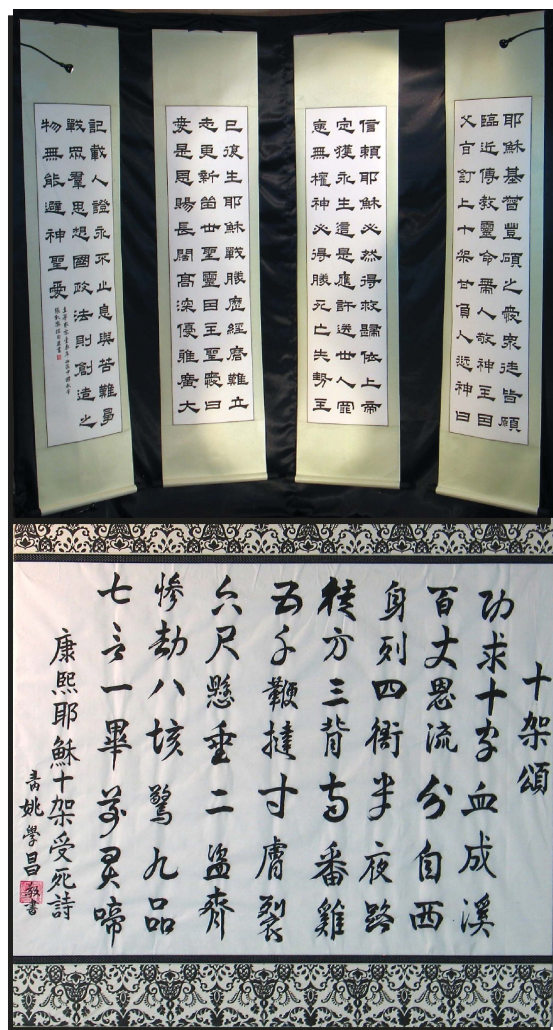 耶穌基督豐碩之愛眾徒皆願
臨近傳教靈命需人敬神王曰
父旨釘上十架甘負人愆神曰
信賴耶穌必然得救歸依上帝
定獲永生這是應許送世人罪
惡無權神必得勝死亡失勢王
已復生耶穌戰勝歷經磨難立
志更新笛世聖靈曰王聖愛曰
愛是恩賜長闊高深優雅廣大
記載人證永不止息與苦難爭
戰眾羣思想國政法則創造之
物無能避神聖愛
十架頌
功求十字血成溪
百丈恩流分自西
身列四衙半夜路
徒方三背兩番雞
五千鞭撻寸膚裂
六尺懸垂二盜齊
慘劫八垓驚九品
七言一畢萬灵啼
康熙耶穌十架受死詩
姚學昌敬書